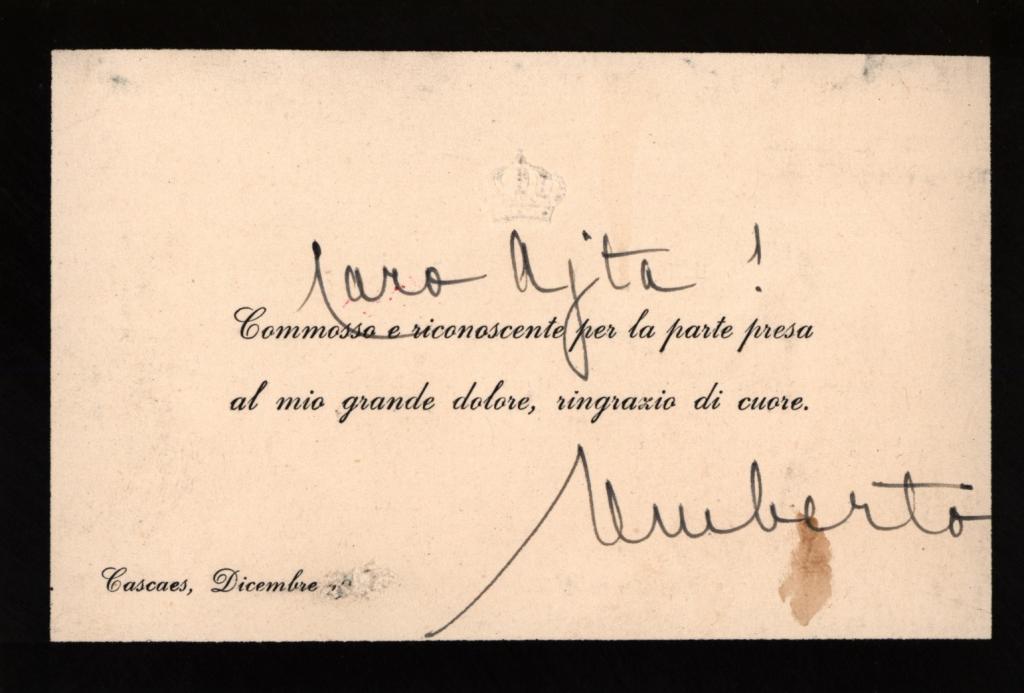 Caro Ajta !
Commosso e riconoscente per la parte presa
al mio grande dolore, ringrazio di cuore.
Umberto
Cascaes, Dicembre